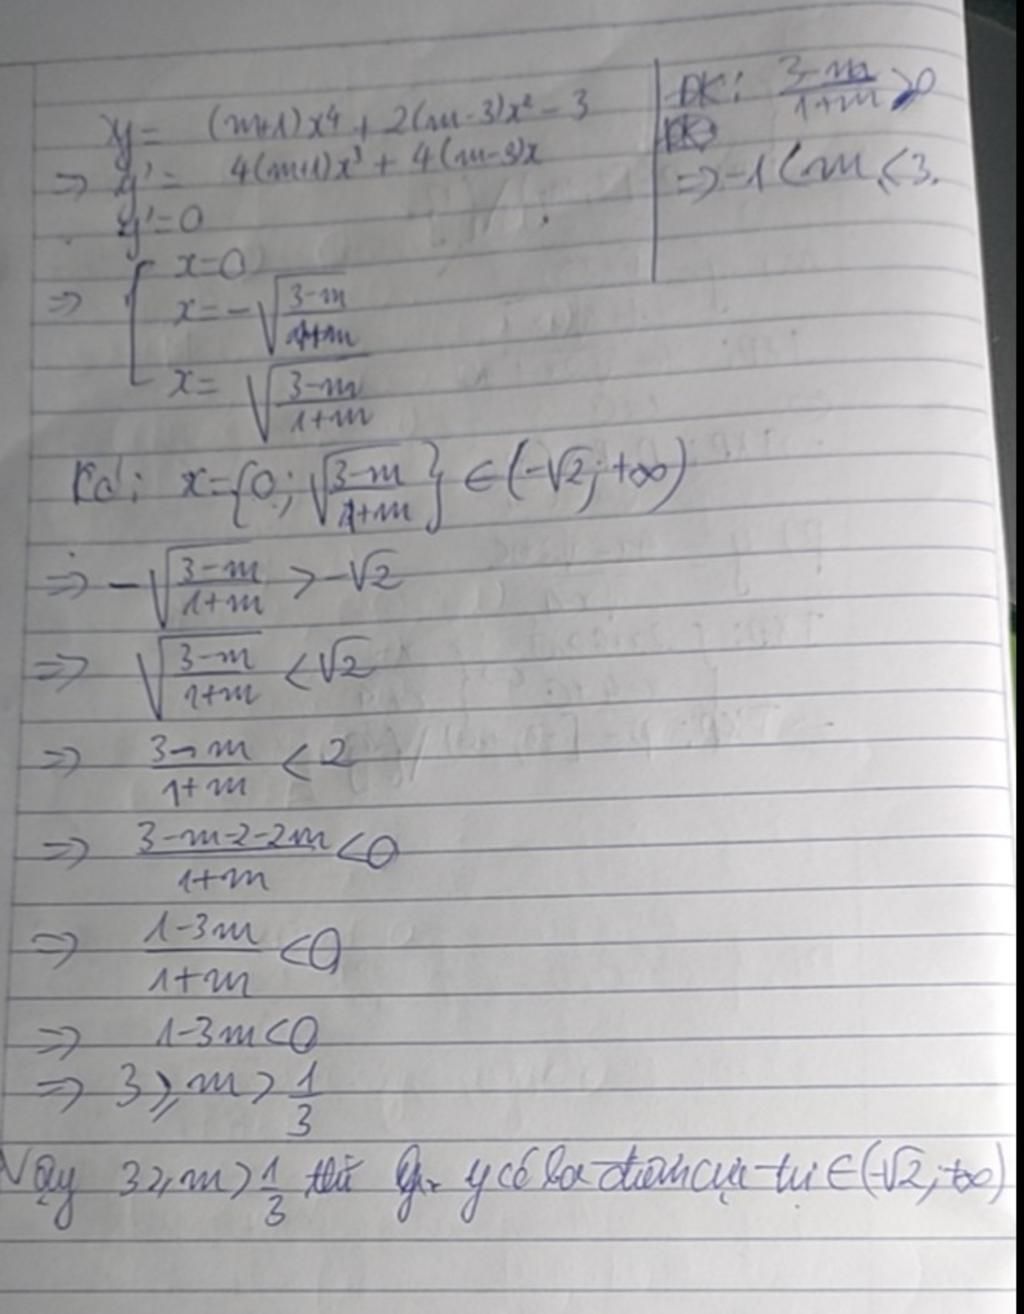 y = (m+1)x⁴ + 2(m-3)x² - 3
⇒ y' = 4(m+1)x³ + 4(m-3)x
y' = 0
⇒ [ x=0
x = -√((3-m)/(1+m))
x = √((3-m)/(1+m))
ĐK: (3-m)/(1+m) > 0
⇒ -1 < m < 3.
x = {0; √((3-m)/(1+m))} ∈ (-√2; +∞)
⇒ -√((3-m)/(1+m)) > -√2
⇒ √((3-m)/(1+m)) < √2
⇒ (3-m)/(1+m) < 2
⇒ (3-m-2-2m)/(1+m) < 0
⇒ (1-3m)/(1+m) < 0
⇒ 1-3m < 0
⇒ 3 ≥ m > 1/3
Vậy 3 ≥ m > 1/3 thì y có ba điểm cực trị ∈ (-√2; +∞)